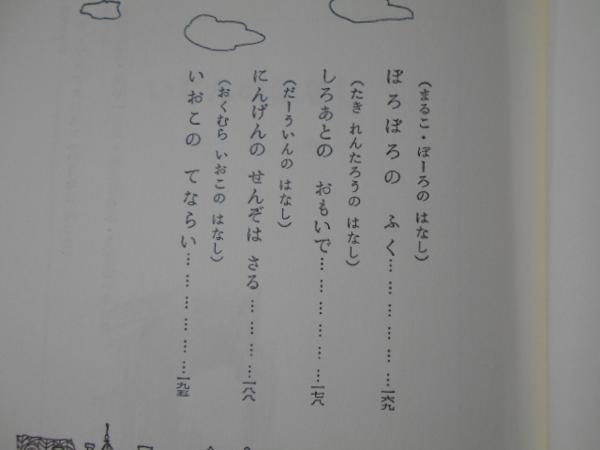 (まるこ・ぽーろの はなし)
ぼろぼろの ふく……………………一六九
(たき れんたろうの はなし)
しろあとの おもいで…………………一七八
(だーういんの はなし)
にんげんの せんぞは さる…………一八八
(おくむら いおこの はなし)
いおこの てならい…………………一九五